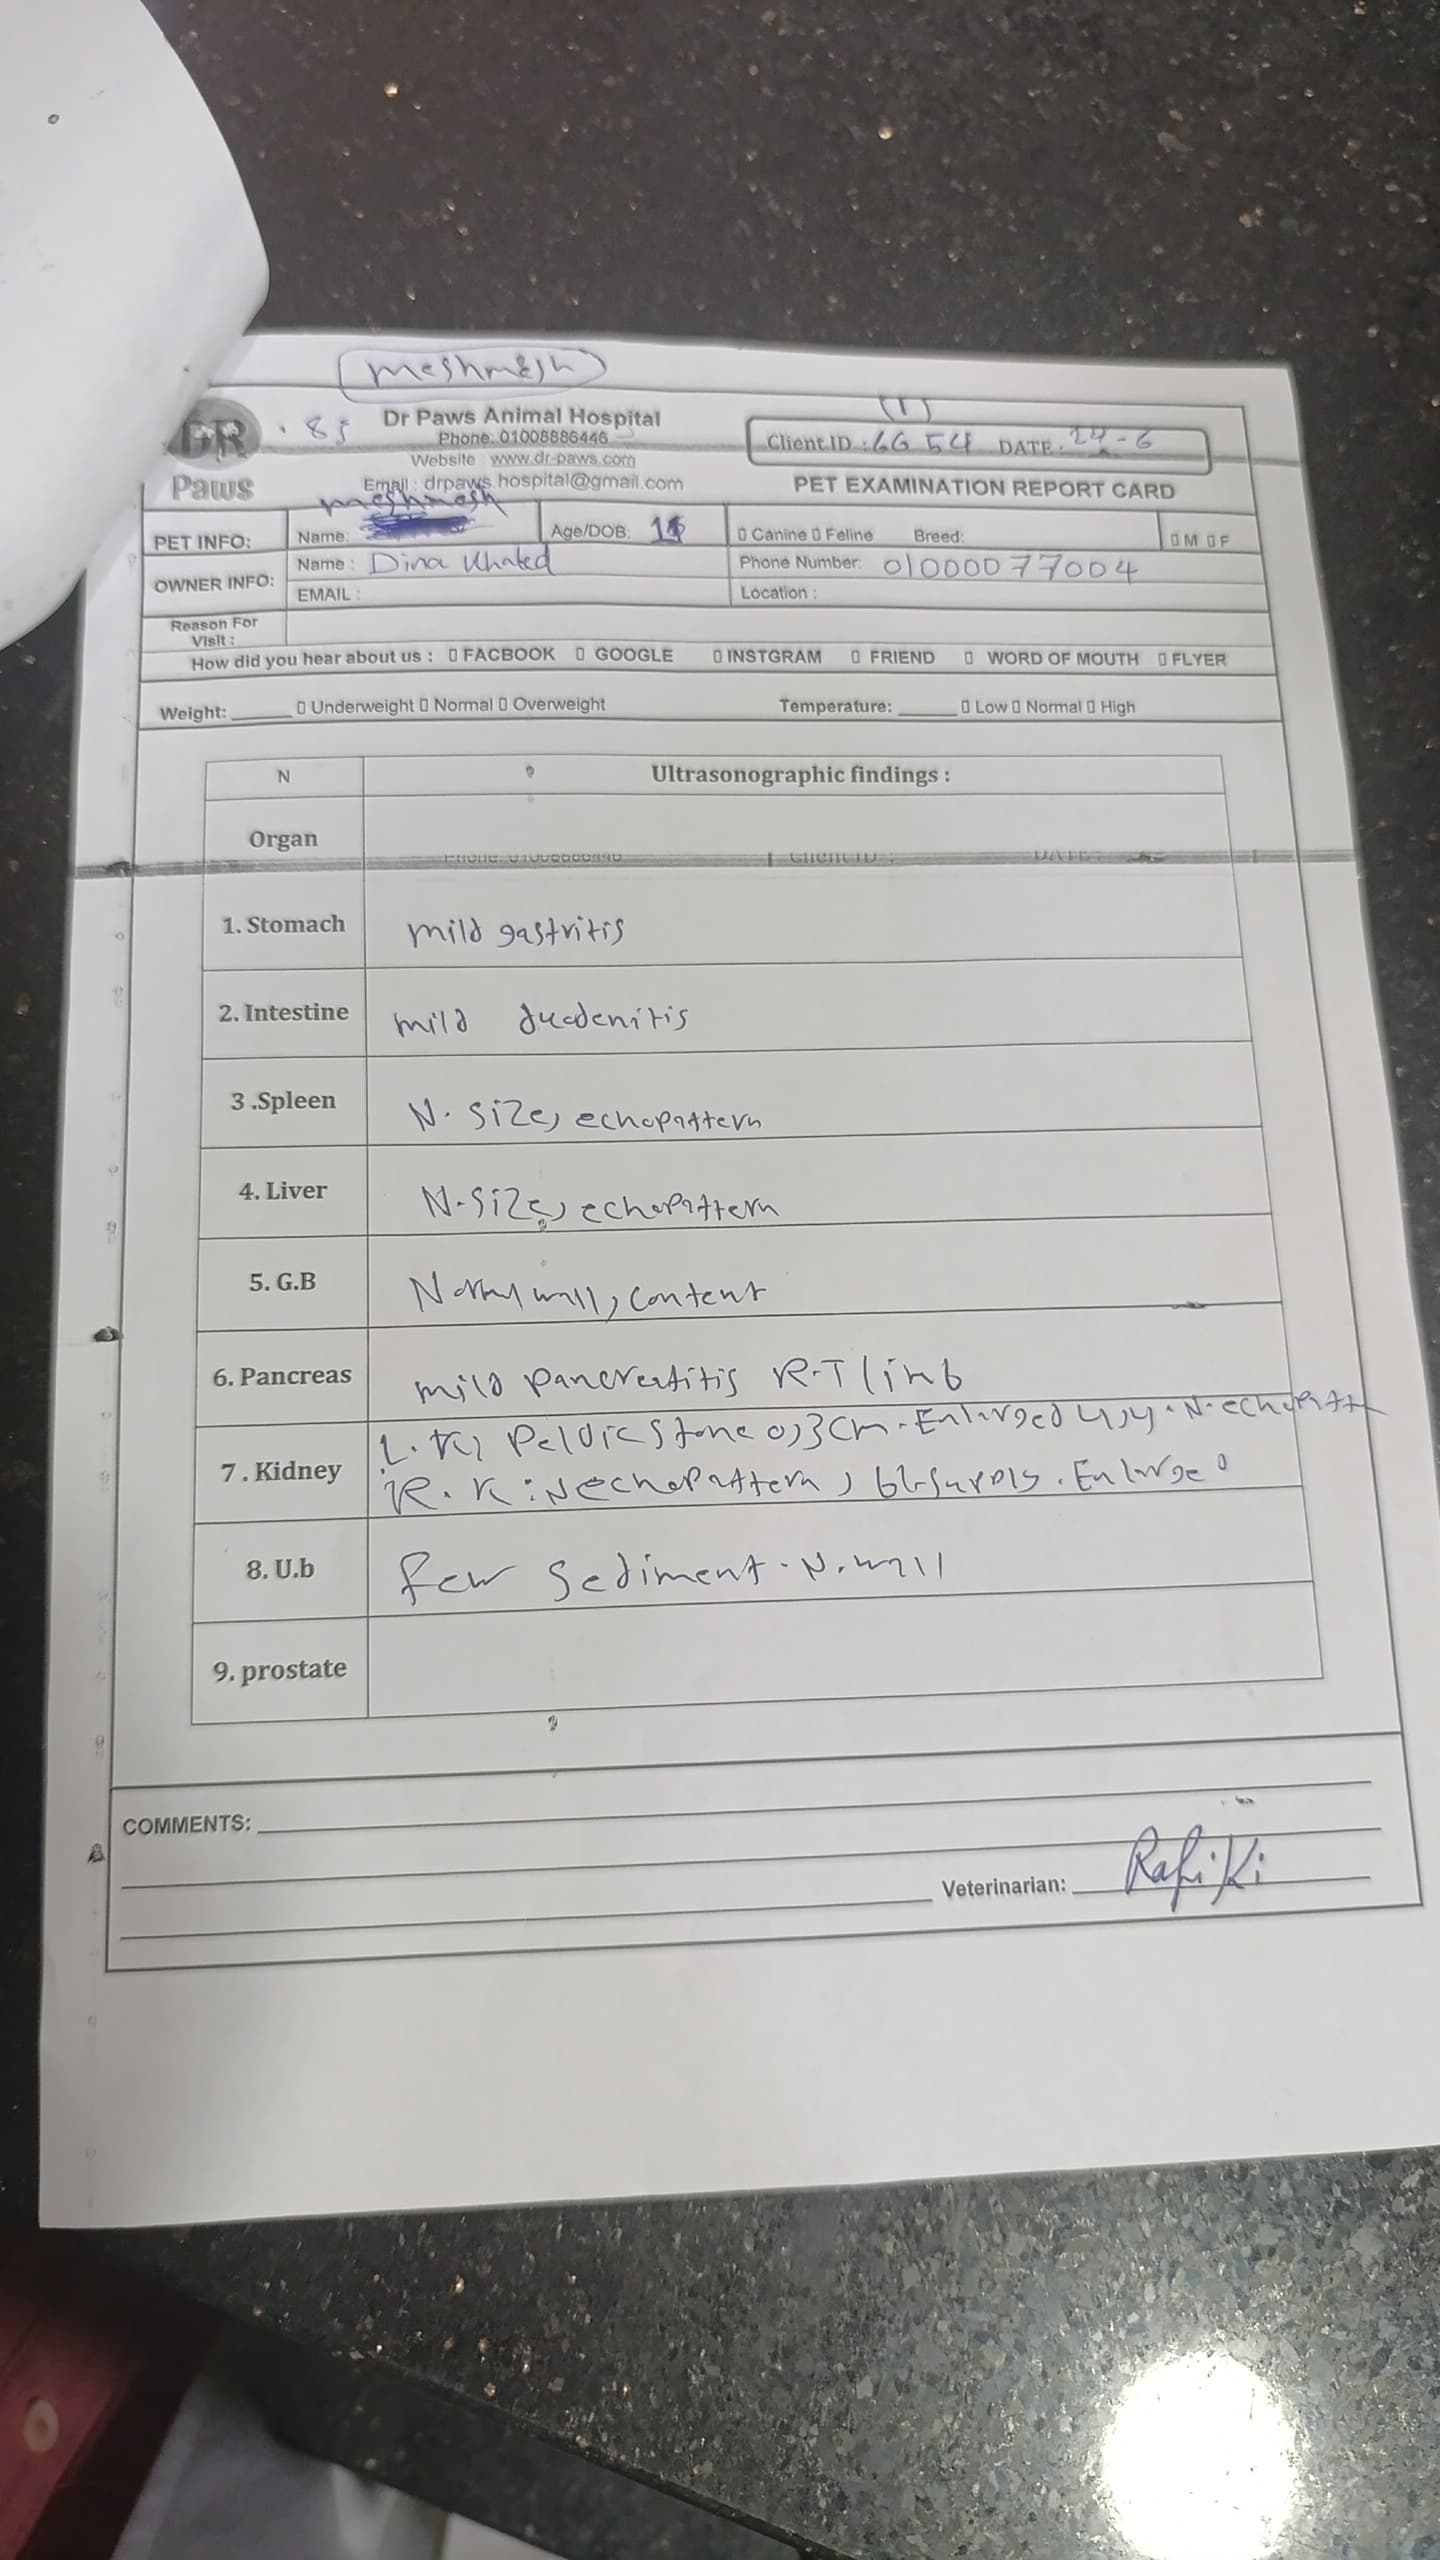 meshmesh
(1)
DR . 85 Dr Paws Animal Hospital
Phone: 01008886446
Client ID : 6654 DATE: 24-6
Website : www.dr-paws.com
Paws Email : drpaws.hospital@gmail.com
PET EXAMINATION REPORT CARD
meshmesh
PET INFO: Name: Age/DOB: Canine Feline Breed: M F
OWNER INFO: Name : Dina Khaled Phone Number: 01000077004
EMAIL : Location :
Reason For
Visit :
How did you hear about us : FACBOOK GOOGLE INSTGRAM FRIEND WORD OF MOUTH FLYER
Weight: Underweight Normal Overweight Temperature: Low Normal High
N Ultrasonographic findings :
Organ
1. Stomach mild gastritis
2. Intestine mild duodenitis
3 .Spleen N. size, echopattern
4. Liver N. size, echopattern
5. G.B Normal wall, content
6. Pancreas mild pancreatitis R.T limb
L. K, Pelvic stone 0,3 cm. Enlarged 4,4. N. echopatt
7 . Kidney
R. K: N echopattern, bl. supply. Enlarge
8. U.b few sediment. N. wall
9. prostate
COMMENTS:
Veterinarian: Rafiki